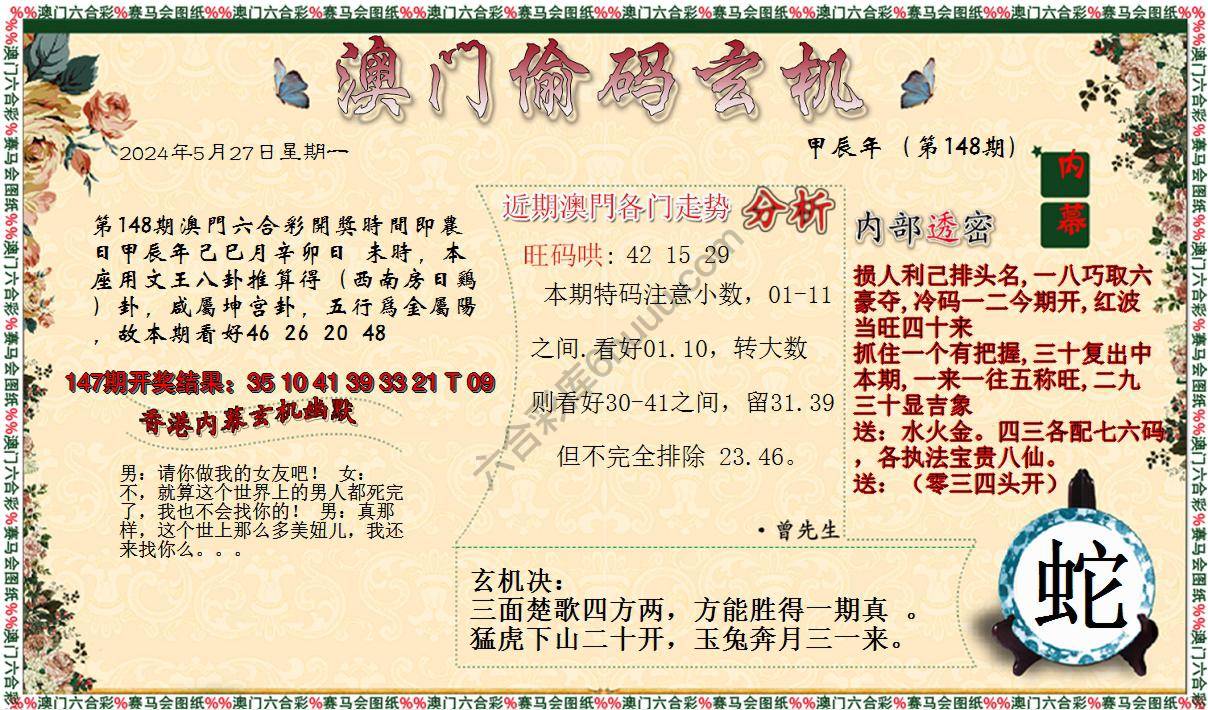 %%澳门六合彩%赛马会图纸%%澳门六合彩%赛马会图纸%%澳门六合彩%赛马会图纸%%澳门六合彩%赛马会图纸%%澳门六合彩%赛马会图纸%%澳门六合彩%赛马会图纸%%
澳门偷码玄机
2024年5月27日星期一
甲辰年（第148期）
内
幕
第148期澳門六合彩開獎時間即農
日甲辰年己巳月辛卯日 未時，本
座用文王八卦推算得（西南房日鷄
）卦，咸屬坤宫卦，五行爲金屬陽
，故本期看好46 26 20 48
147期开奖结果：35 10 41 39 33 21 T 09
香港内幕玄机幽默
男：请你做我的女友吧！ 女：
不，就算这个世界上的男人都死完
了，我也不会找你的！ 男：真那
样，这个世上那么多美妞儿，我还
来找你么。。。
近期澳門各门走势 分析
旺码哄: 42 15 29
本期特码注意小数，01-11
之间.看好01.10，转大数
则看好30-41之间，留31.39
但不完全排除 23.46。
·曾先生
内部透密
损人利己排头名,一八巧取六
豪夺,冷码一二今期开,红波
当旺四十来
抓住一个有把握,三十复出中
本期,一来一往五称旺,二九
三十显吉象
送：水火金。四三各配七六码
，各执法宝贵八仙。
送：（零三四头开）
玄机决：
三面楚歌四方两，方能胜得一期真 。
猛虎下山二十开，玉兔奔月三一来。
蛇
六合彩库6huuu.com